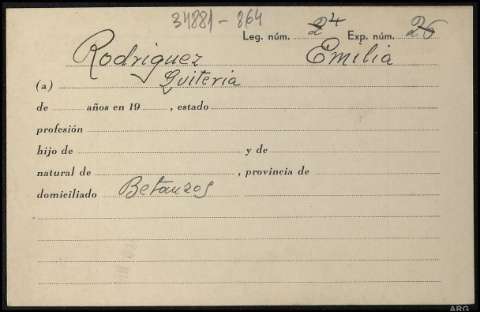 34881-864
Leg. núm. 24 Exp. núm. 26
Rodriguez Emilia
(a) Quiteria
de años en 19 , estado
profesión
hijo de y de
natural de , provincia de
domiciliado Betanzos
ARG